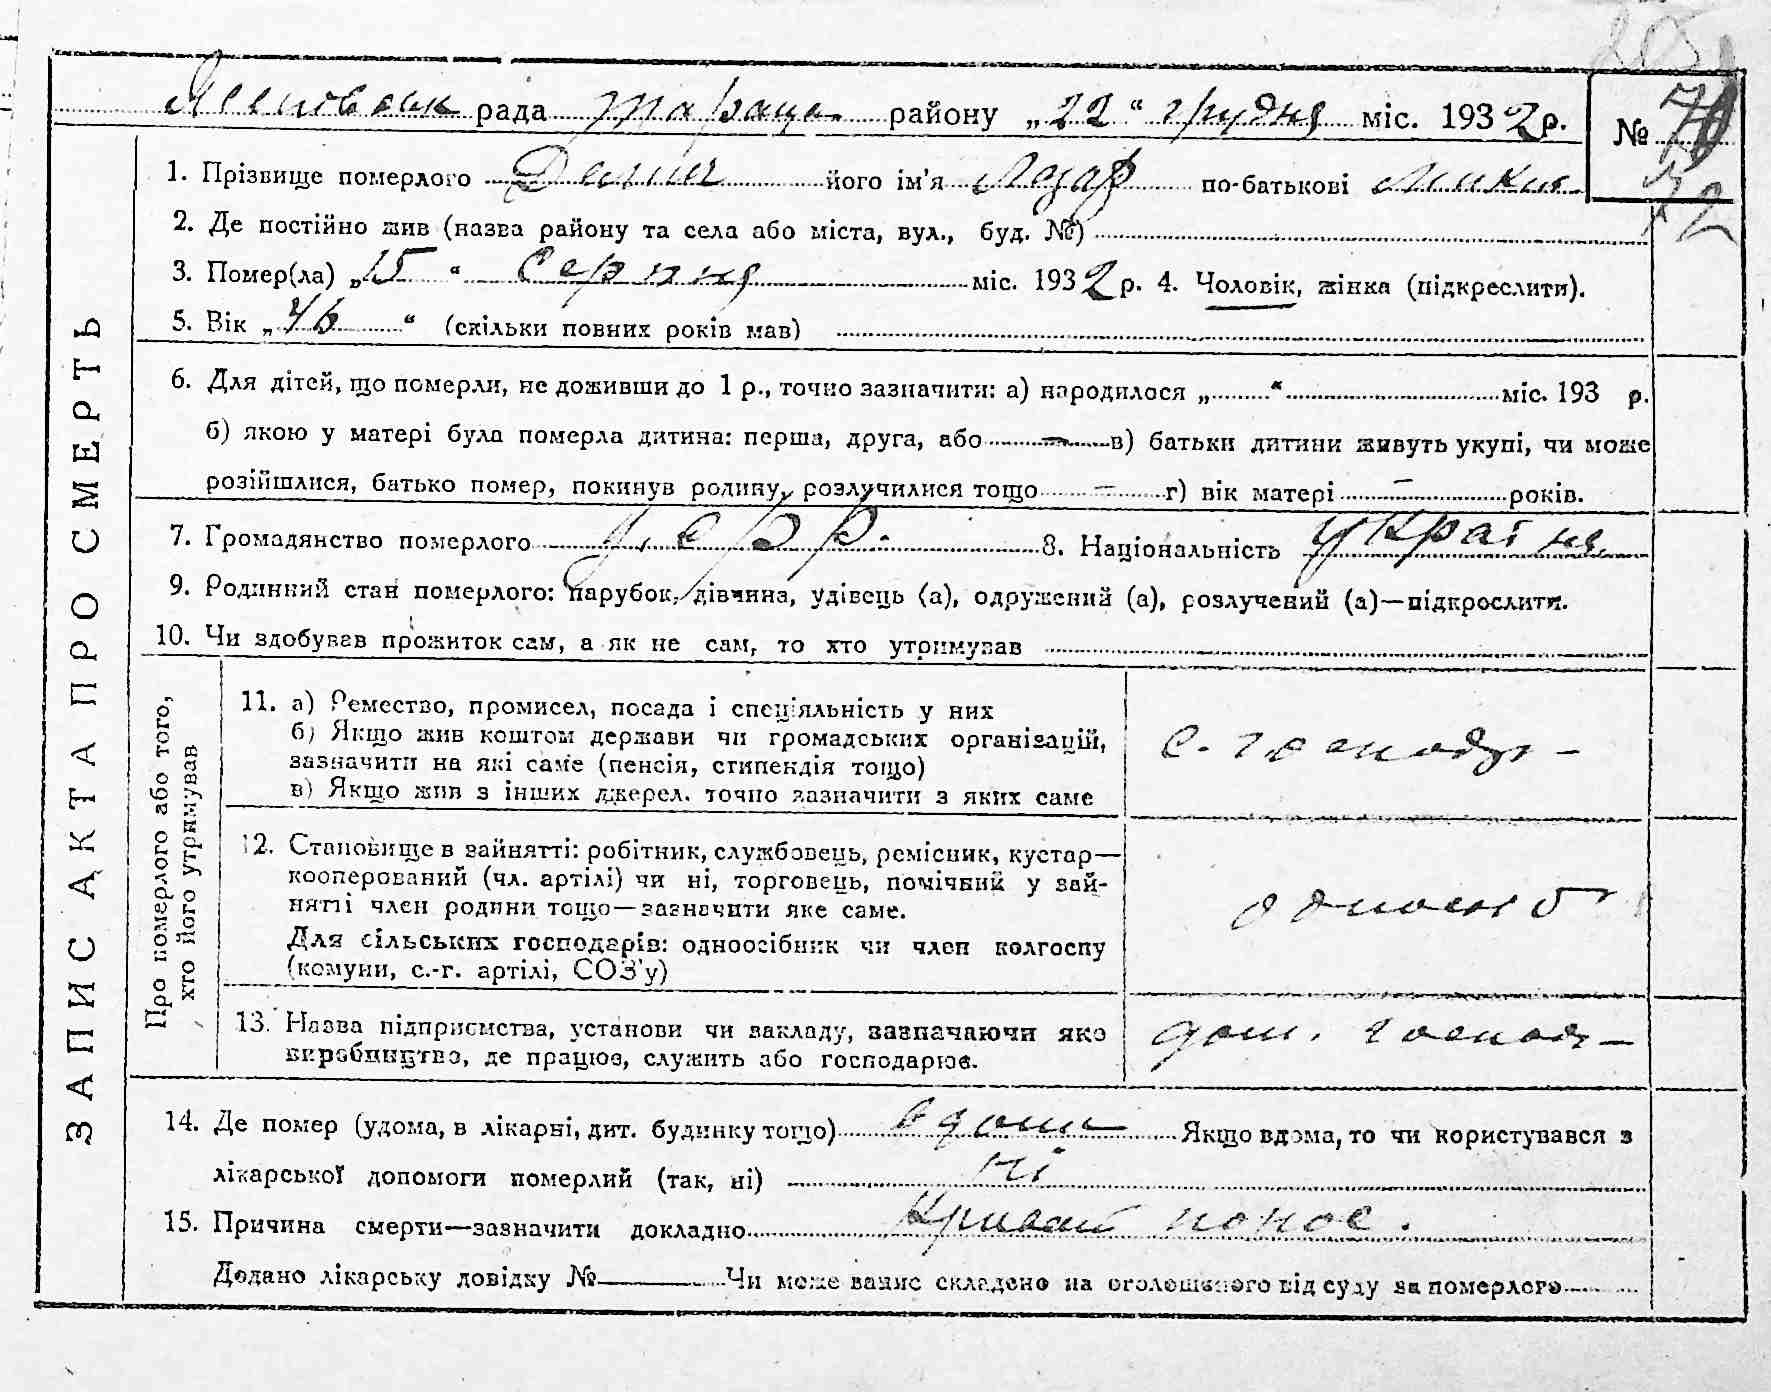 рада Тараща району „22“ грудня міс. 1932 р.
№ 70
72
1. Прізвище померлого його ім'я Лазар по-батькові Мики
2. Де постійно жив (назва району та села або міста, вул., буд. №)
3. Помер(ла) „15“ Серпня міс. 1932 р. 4. Чоловік, жінка (підкреслити).
5. Вік „46“ (скільки повних років мав)
6. Для дітей, що померли, не доживши до 1 р., точно зазначити: а) народилося „ “ міс. 193 р.
б) якою у матері була померла дитина: перша, друга, або — в) батьки дитини живуть укупі, чи може
розійшлися, батько помер, покинув родину, розлучилися тощо — г) вік матері — років.
7. Громадянство померлого У.С.Р.Р. 8. Національність україн.
9. Родинний стан померлого: парубок, дівчина, удівець (а), одружений (а), розлучений (а)—підкреслити.
10. Чи здобував прожиток сам, а як не сам, то хто утримував
ЗАПИС АКТА ПРО СМЕРТЬ
Про померлого або того,
хто його утримував
11. а) Ремество, промисел, посада і спеціяльність у них
б) Якщо жив коштом держави чи громадських організацій,
зазначити на які саме (пенсія, стипендія тощо)
в) Якщо жив з інших джерел, точно зазначити з яких саме
с. господар –
12. Становище в зайнятті: робітник, службовець, ремісник, кустар—
кооперований (чл. артілі) чи ні, торговець, помічний у зай-
нятті член родини тощо—зазначити яке саме.
Для сільських господарів: одноосібник чи член колгоспу
(комуни, с.-г. артілі, СОЗ'у)
одноосіб
13. Назва підприємства, установи чи закладу, зазначаючи яко
виробництво, де працює, служить або господарює.
дом. господ –
14. Де помер (удома, в лікарні, дит. будинку тощо) вдома Якщо вдома, то чи користувався з
лікарської допомоги померлий (так, ні) ні
15. Причина смерти—зазначити докладно Кривавий понос.
Додано лікарську довідку № Чи може запис складено на оголошеного від суду за померлого